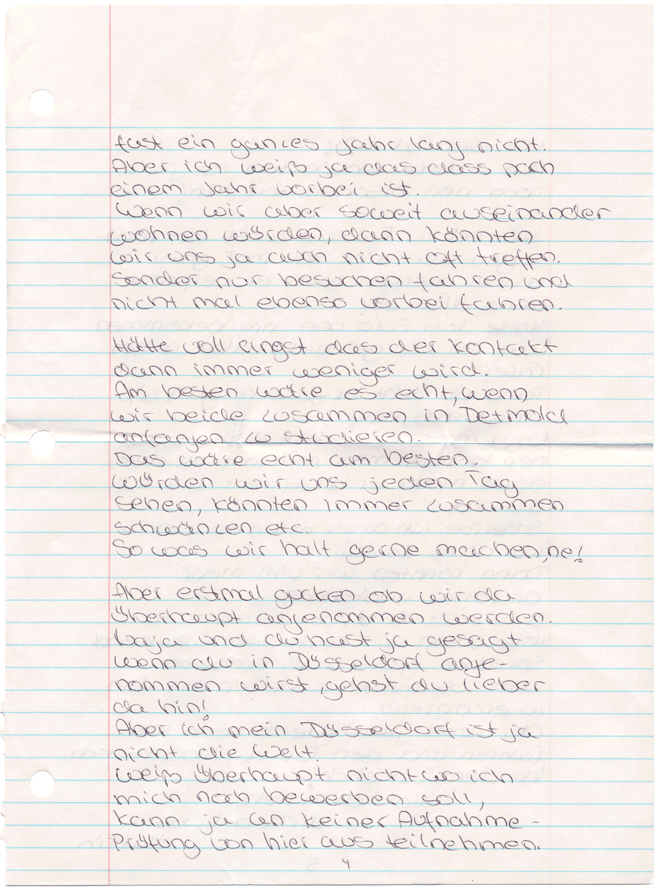 fast ein ganzes Jahr lang nicht.
Aber ich weiß ja das dass nach
einem Jahr vorbei ist.
Wenn wir aber soweit auseinander
wohnen würden, dann könnten
wir uns ja auch nicht oft treffen.
Sonder nur besuchen fahren und
nicht mal ebenso vorbei fahren.
Hätte voll Angst das der Kontakt
dann immer weniger wird.
Am besten wäre es echt, wenn
wir beide zusammen in Detmold
anfangen zu studieren.
Das wäre echt am besten.
Würden wir uns jeden Tag
sehen, könnten immer zusammen
schwänzen etc.
So was wir halt gerne machen, ne!
Aber erstmal gucken ob wir da
überhaupt angenommen werden.
Naja und du hast ja gesagt
wenn du in Düsseldorf ange-
nommen wirst, gehst du lieber
da hin!
Aber ich mein Düsseldorf ist ja
nicht die Welt.
Weiß überhaupt nicht wo ich
mich noch bewerben soll,
kann ja an keiner Aufnahme-
Prüfung von hier aus teilnehmen.
4